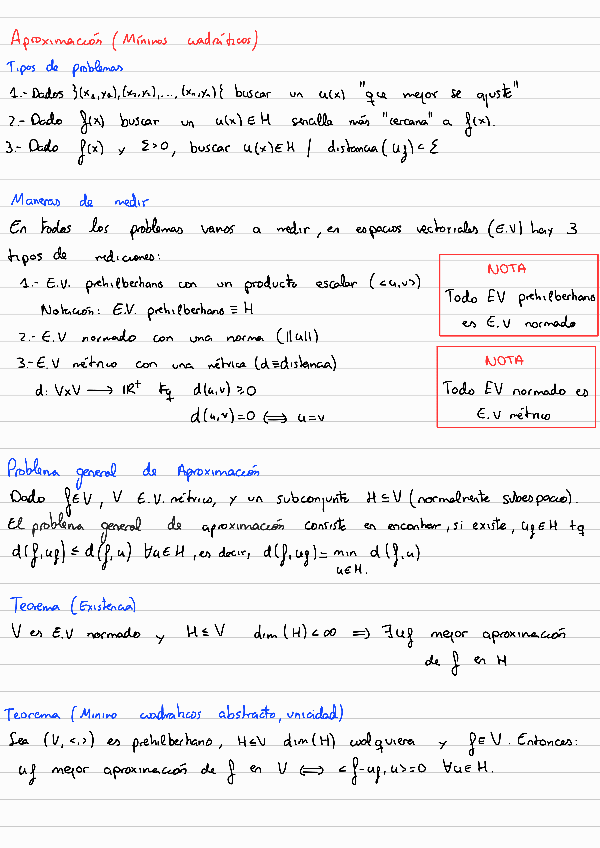 Aproximación (Mínimos cuadráticos)
Tipos de problemas
1.- Dados {(x₁,y₁),(x₂,y₂),...,(xₙ,yₙ)} buscar un u(x) "que mejor se ajuste"
2.- Dado f(x) buscar un u(x)∈H sencilla más "cercana" a f(x).
3.- Dado f(x) y Σ>0, buscar u(x)∈H / distancia(u,f)<Σ
Maneras de medir
En todos los problemas vamos a medir, en espacios vectoriales (E.V) hay 3
tipos de mediciones:
1.- E.V. prehilbertiano con un producto escalar (<u,v>)
Notación: E.V. prehilbertiano ≡ H
2.- E.V normado con una norma (||u||)
3.- E.V métrico con una métrica (d≡distancia)
d: V×V ⟶ ℝ⁺ tq d(u,v)≥0
d(u,v)=0 ⟺ u=v
NOTA
Todo EV prehilbertiano
es E.V normado
NOTA
Todo EV normado es
E.V métrico
Problema general de Aproximación
Dado f∈V, V E.V. métrico, y un subconjunto H≤V (normalmente subespacio).
El problema general de aproximación consiste en encontrar, si existe, uf∈H tq
d(f,uf) ≤ d(f,u) ∀u∈H, es decir, d(f,uf)= min d(f,u)
u∈H.
Teorema (Existencia)
V es E.V normado y H≤V dim(H)<∞ ⟹ ∃uf mejor aproximación
de f en H
Teorema (Mínimo cuadráticos abstracto, unicidad)
Sea (V,<,>) es prehilbertiano, H≤V dim(H) cualquiera y f∈V. Entonces:
uf mejor aproximación de f en V ⟺ <f-uf,u>=0 ∀u∈H.